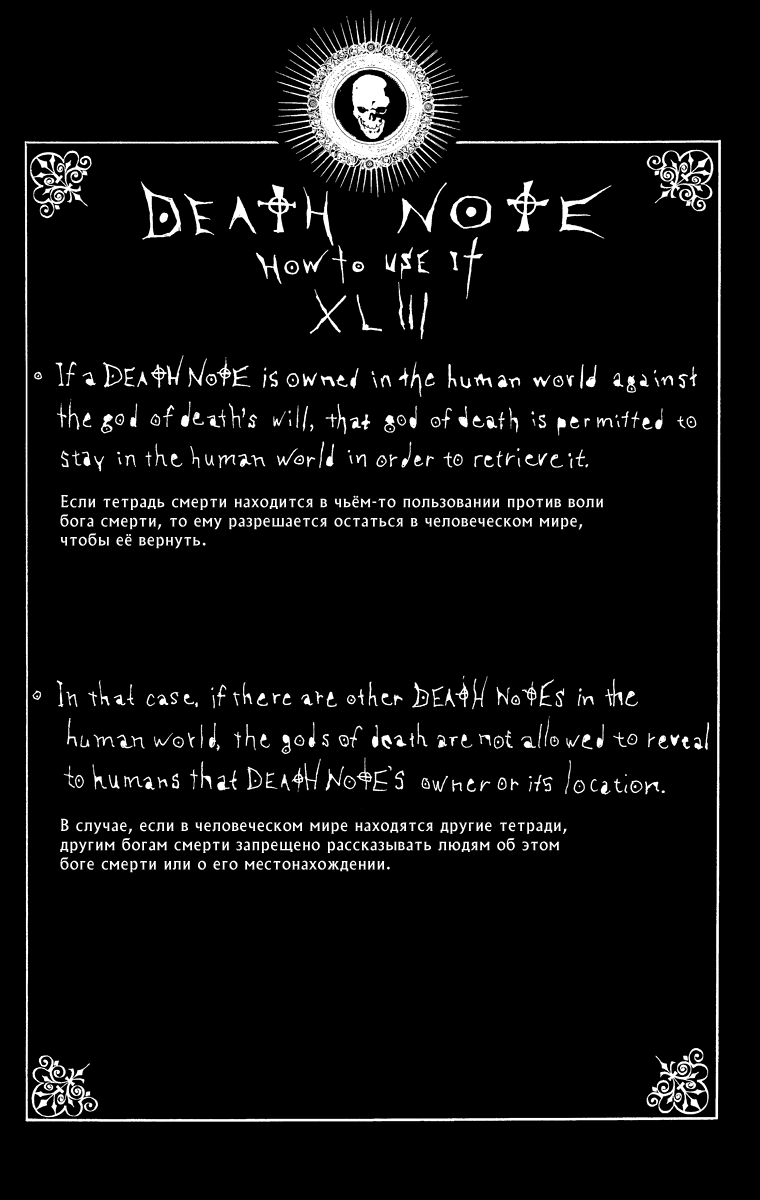 DEATH NOTE
HOW to USE It
XLIII
If a DEATH NOTE is owned in the human world against
the god of death's will, that god of death is permitted to
stay in the human world in order to retrieve it.
Если тетрадь смерти находится в чьём-то пользовании против воли
бога смерти, то ему разрешается остаться в человеческом мире,
чтобы её вернуть.
In that case, if there are other DEATH NOTEs in the
human world, the gods of death are not allowed to reveal
to humans that DEATH NOTE'S owner or its location.
В случае, если в человеческом мире находятся другие тетради,
другим богам смерти запрещено рассказывать людям об этом
боге смерти или о его местонахождении.